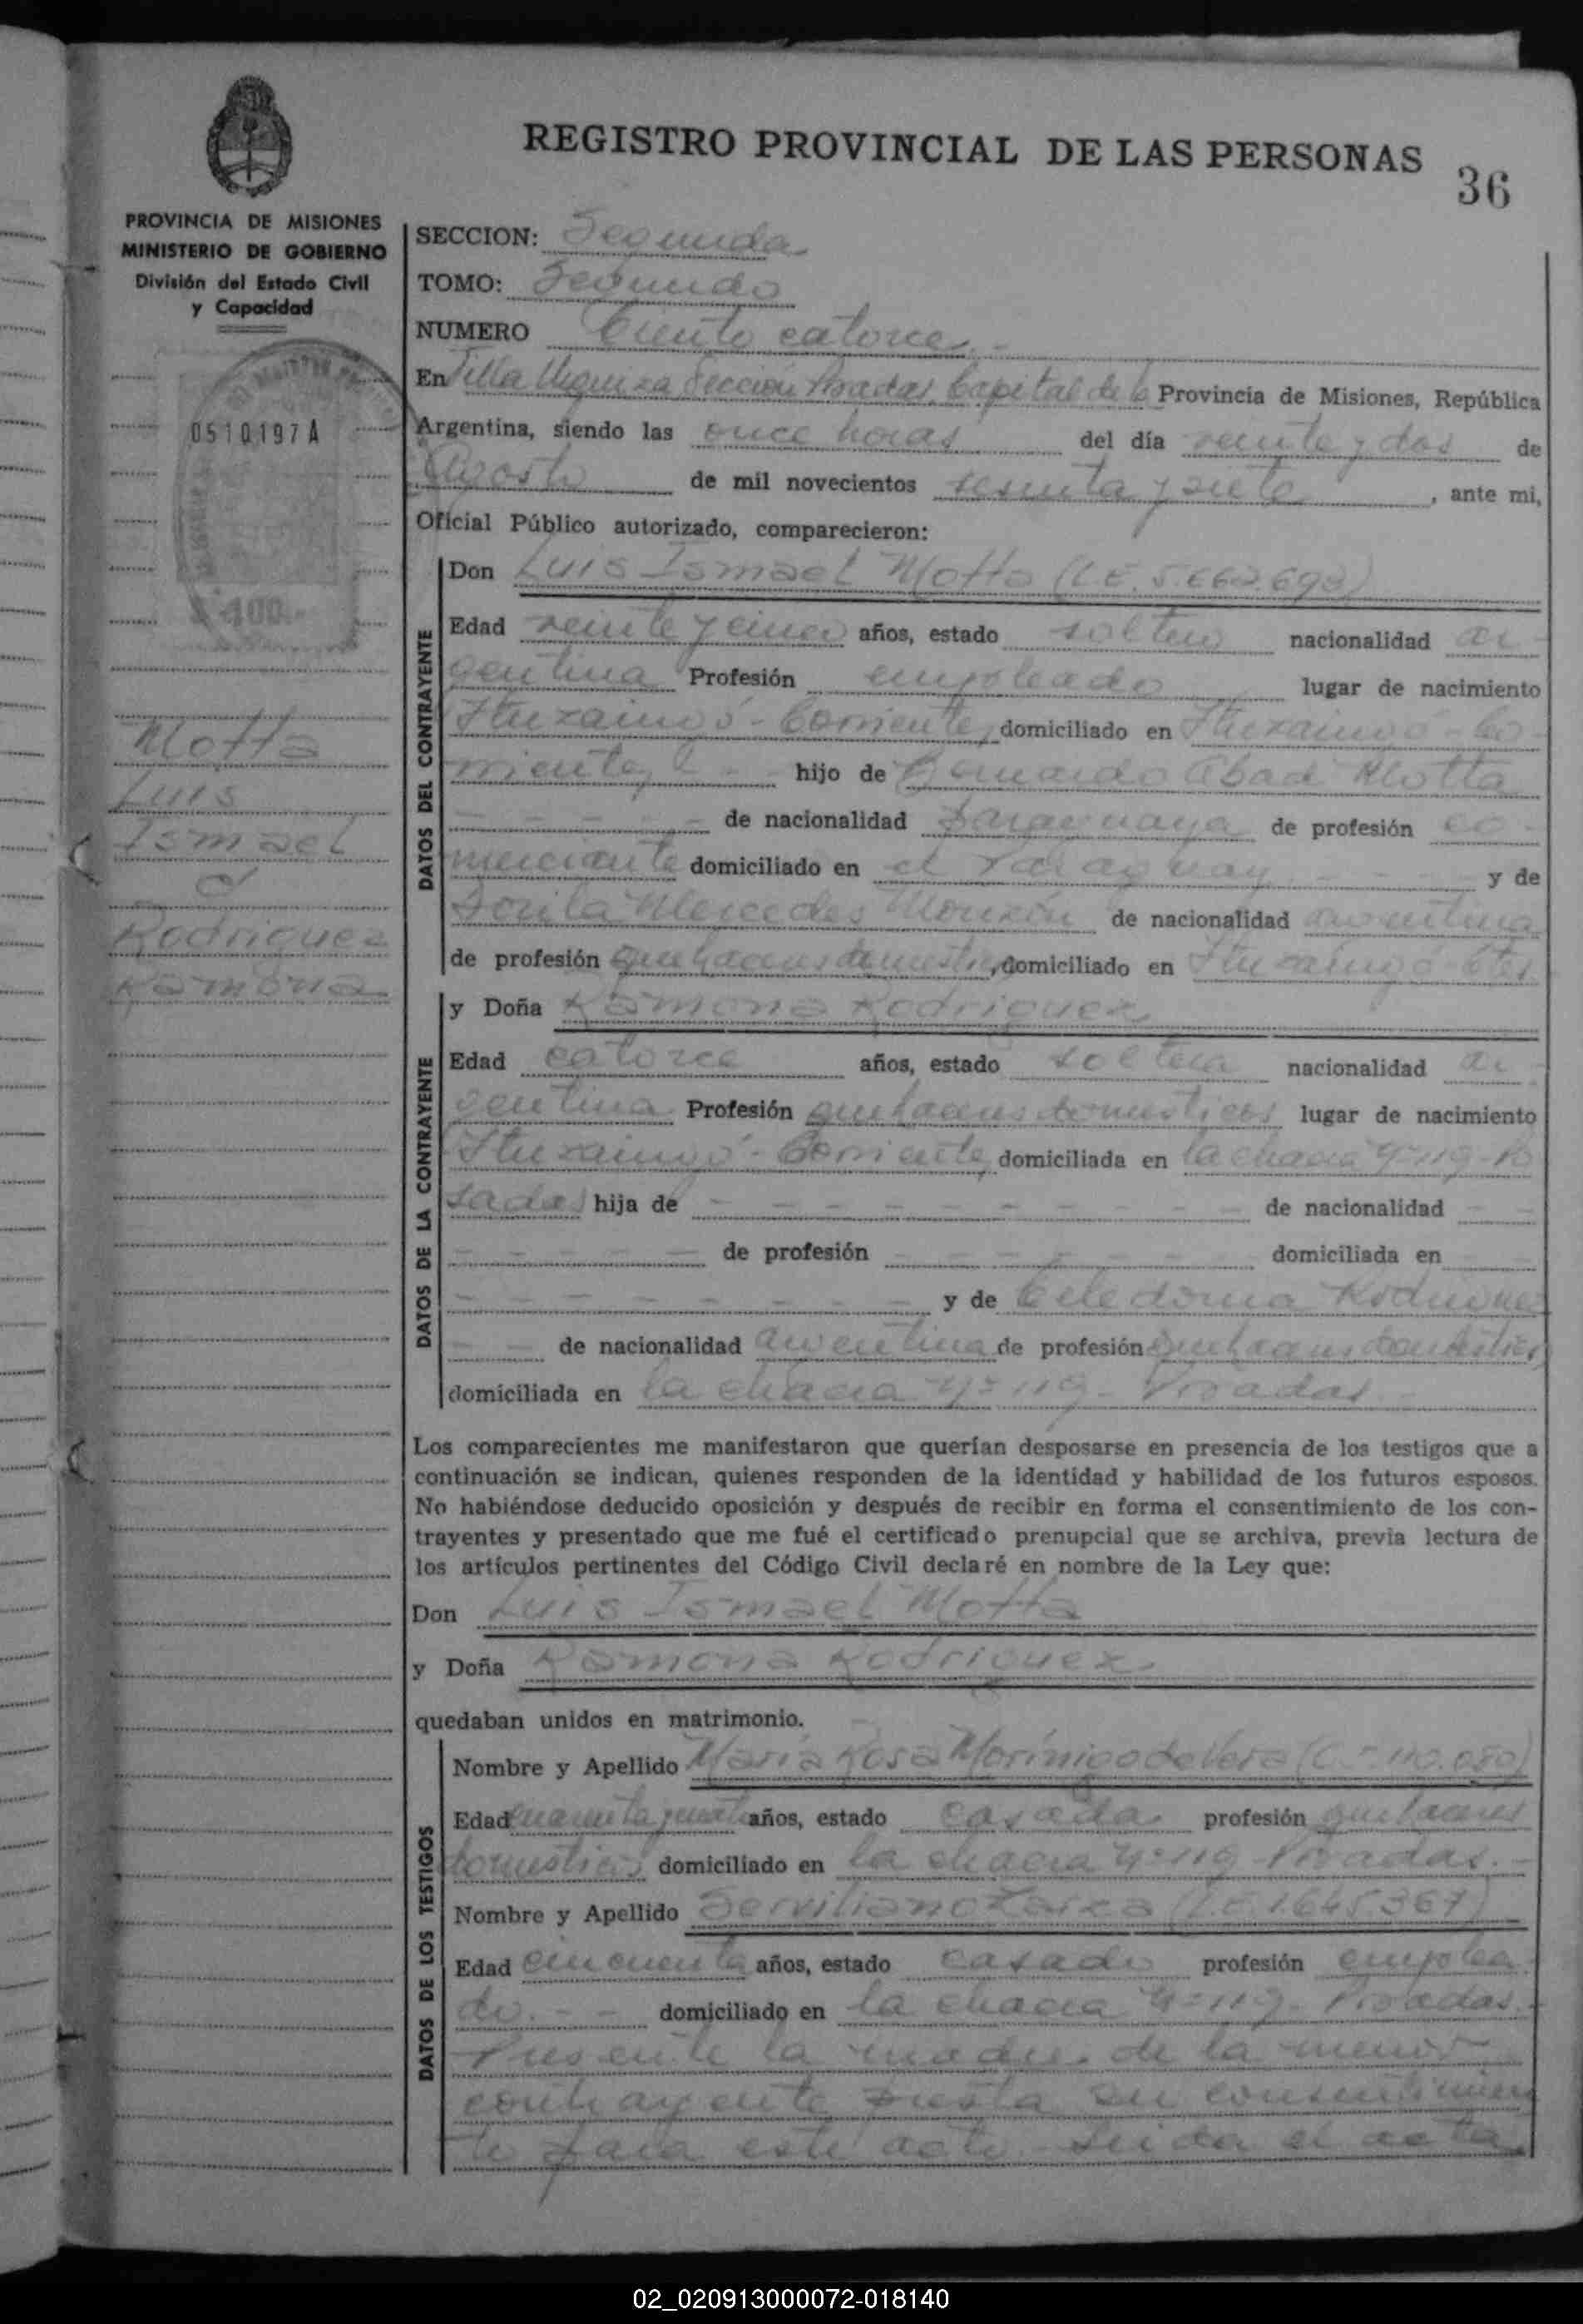 REGISTRO PROVINCIAL DE LAS PERSONAS
36
PROVINCIA DE MISIONES
MINISTERIO DE GOBIERNO
División del Estado Civil
y Capacidad
0510197A
100
Motta
Luis
Ismael
c/
Rodriguez
Ramona
SECCION: Segunda
TOMO: Segundo
NUMERO Ciento catorce.-
En Villa Urquiza Sección Posadas, Capital de la Provincia de Misiones, República
Argentina, siendo las once horas del día veinte y dos de
Agosto de mil novecientos sesenta y siete, ante mi,
Oficial Público autorizado, comparecieron:
DATOS DEL CONTRAYENTE
Don Luis Ismael Motta (L.E. 5.662.693)
Edad veinte y cinco años, estado soltero nacionalidad ar-
gentina Profesión empleado lugar de nacimiento
Ituzaingó - Corrientes, domiciliado en Ituzaingó - Co-
rrientes - - - hijo de Bernardo Abad Motta
- - - - - - de nacionalidad Paraguaya de profesión co-
merciante domiciliado en el Paraguay - - - - y de
Mercedes Monzón de nacionalidad argentina
de profesión quehaceres domesticos, domiciliado en Ituzaingó - Ctes.
DATOS DE LA CONTRAYENTE
y Doña Ramona Rodriguez
Edad catorce años, estado soltera nacionalidad ar-
gentina Profesión quehaceres domesticos lugar de nacimiento
Ituzaingó - Corrientes, domiciliada en la chacra Nº 119 - Po-
sadas hija de - - - - - - - - - de nacionalidad - -
- - - - - - de profesión - - - - - - domiciliada en
- - - - - - - - - y de Celedonia Rodriguez
- - de nacionalidad argentina de profesión quehaceres domesticos,
domiciliada en la chacra Nº 119 - Posadas -
Los comparecientes me manifestaron que querían desposarse en presencia de los testigos que a
continuación se indican, quienes responden de la identidad y habilidad de los futuros esposos.
No habiéndose deducido oposición y después de recibir en forma el consentimiento de los con-
trayentes y presentado que me fué el certificado prenupcial que se archiva, previa lectura de
los artículos pertinentes del Código Civil declaré en nombre de la Ley que:
Don Luis Ismael Motta
y Doña Ramona Rodriguez
quedaban unidos en matrimonio.
DATOS DE LOS TESTIGOS
Nombre y Apellido María Rosa Morínigo de Vera
Edad años, estado casada profesión quehaceres
domesticos, domiciliado en la chacra Nº 119 - Posadas. -
Nombre y Apellido Serviliano (L.E. 1.645.367)
Edad cincuenta años, estado casado profesión emplea-
do. - - domiciliado en la chacra Nº 119 - Posadas. -
Presente la madre de la menor
contrayente presta su consentimien
to para este acto. Leida el acta
02_020913000072-018140